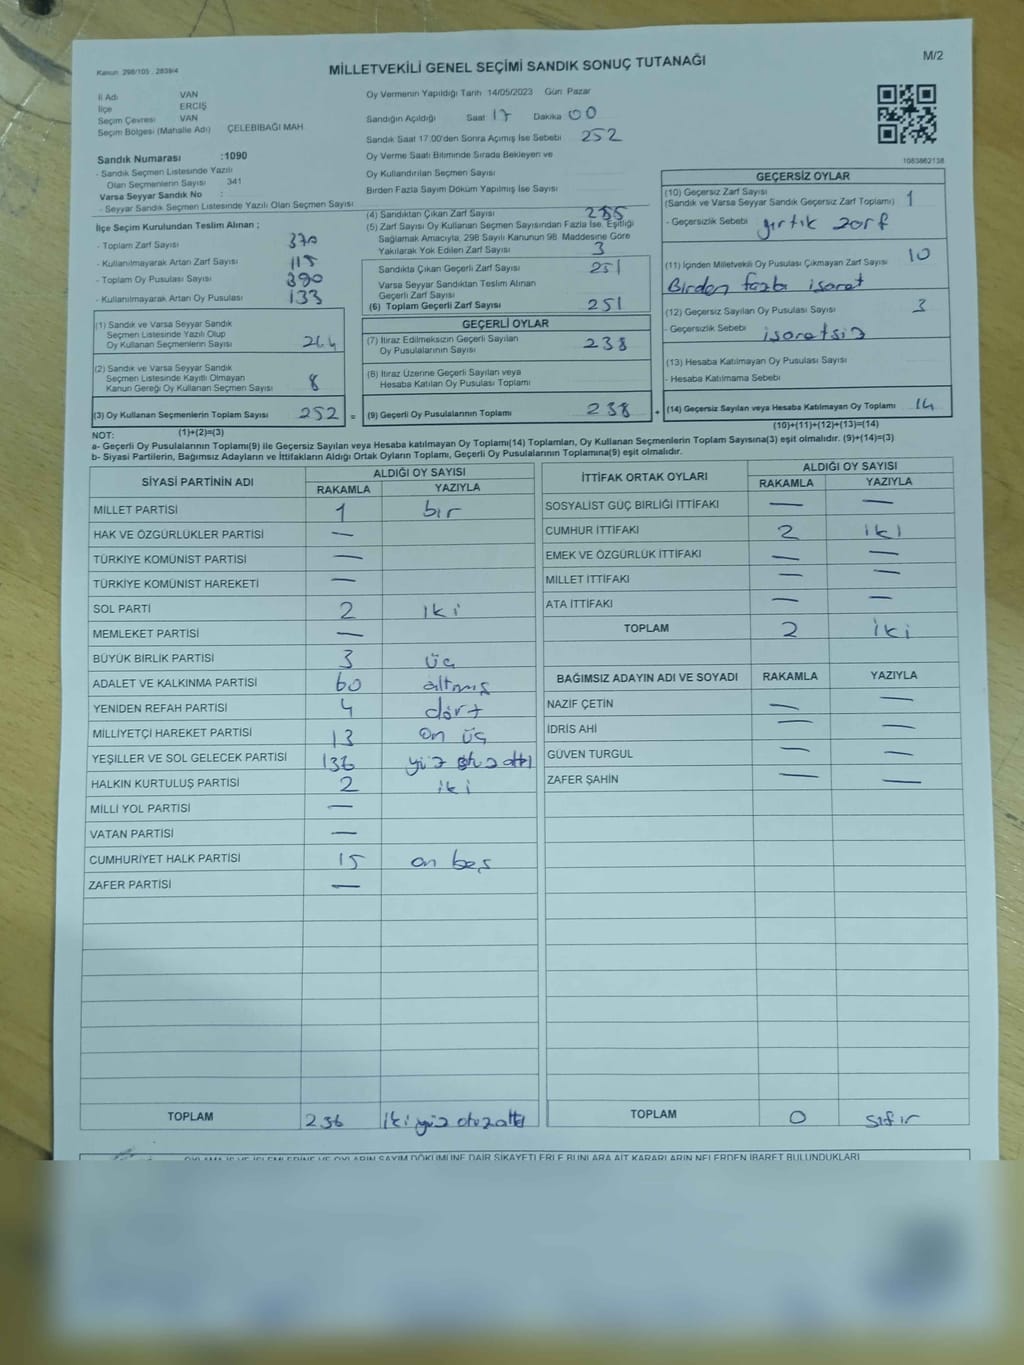 Kanun: 298/105 , 2839/4
MİLLETVEKİLİ GENEL SEÇİMİ SANDIK SONUÇ TUTANAĞI
M/2
İl Adı VAN
İlçe ERCİŞ
Seçim Çevresi VAN
Seçim Bölgesi (Mahalle Adı) ÇELEBİBAĞI MAH.
Sandık Numarası :1090
- Sandık Seçmen Listesinde Yazılı
Olan Seçmenlerin Sayısı 341
Varsa Seyyar Sandık No :
- Seyyar Sandık Seçmen Listesinde Yazılı Olan Seçmen Sayısı
Oy Vermenin Yapıldığı Tarih 14/05/2023 Gün Pazar
Sandığın Açıldığı Saat 17 Dakika 00
Sandık Saat 17:00'den Sonra Açımış İse Sebebi 252
Oy Verme Saati Bitiminde Sırada Bekleyen ve
Oy Kullandırılan Seçmen Sayısı
Birden Fazla Sayım Döküm Yapılmış İse Sayısı
1083862138
İlçe Seçim Kurulundan Teslim Alınan ;
- Toplam Zarf Sayısı 370
- Kullanılmayarak Artan Zarf Sayısı 115
- Toplam Oy Pusulası Sayısı 390
- Kullanılmayarak Artan Oy Pusulası 133
(1) Sandık ve Varsa Seyyar Sandık
Seçmen Listesinde Yazılı Olup
Oy Kullanan Seçmenlerin Sayısı 244
(2) Sandık ve Varsa Seyyar Sandık
Seçmen Listesinde Kayıtlı Olmayan
Kanun Gereği Oy Kullanan Seçmen Sayısı 8
(3) Oy Kullanan Seçmenlerin Toplam Sayısı 252 =
(1)+(2)=(3)
(4) Sandıktan Çıkan Zarf Sayısı 255
(5) Zarf Sayısı Oy Kullanan Seçmen Sayısından Fazla İse, Eşitliği
Sağlamak Amacıyla, 298 Sayılı Kanunun 98. Maddesine Göre
Yakılarak Yok Edilen Zarf Sayısı 3
Sandıkta Çıkan Geçerli Zarf Sayısı 251
Varsa Seyyar Sandıktan Teslim Alınan
Geçerli Zarf Sayısı
(6) Toplam Geçerli Zarf Sayısı 251
GEÇERLİ OYLAR
(7) İtiraz Edilmeksizin Geçerli Sayılan
Oy Pusulalarının Sayısı 238
(8) İtiraz Üzerine Geçerli Sayılan veya
Hesaba Katılan Oy Pusulası Toplamı
(9) Geçerli Oy Pusulalarının Toplamı 238 +
GEÇERSİZ OYLAR
(10) Geçersiz Zarf Sayısı
(Sandık ve Varsa Seyyar Sandık Geçersiz Zarf Toplamı) 1
- Geçersizlik Sebebi yırtık zarf
(11) İçinden Milletvekili Oy Pusulası Çıkmayan Zarf Sayısı 10
Birden fazla işaret
(12) Geçersiz Sayılan Oy Pusulası Sayısı 3
- Geçersizlik Sebebi işaretsiz
(13) Hesaba Katılmayan Oy Pusulası Sayısı
- Hesaba Katılmama Sebebi
(14) Geçersiz Sayılan veya Hesaba Katılmayan Oy Toplamı 14
(10)+(11)+(12)+(13)=(14)
NOT:
a- Geçerli Oy Pusulalarının Toplamı(9) ile Geçersiz Sayılan veya Hesaba katılmayan Oy Toplamı(14) Toplamları, Oy Kullanan Seçmenlerin Toplam Sayısına(3) eşit olmalıdır. (9)+(14)=(3)
b- Siyasi Partilerin, Bağımsız Adayların ve İttifakların Aldığı Ortak Oyların Toplamı, Geçerli Oy Pusulalarının Toplamına(9) eşit olmalıdır.
SİYASİ PARTİNİN ADI ALDIĞI OY SAYISI
RAKAMLA YAZIYLA
MİLLET PARTİSİ 1 bir
HAK VE ÖZGÜRLÜKLER PARTİSİ —
TÜRKİYE KOMÜNİST PARTİSİ —
TÜRKİYE KOMÜNİST HAREKETİ —
SOL PARTİ 2 iki
MEMLEKET PARTİSİ —
BÜYÜK BİRLİK PARTİSİ 3 üç
ADALET VE KALKINMA PARTİSİ 60 altmış
YENİDEN REFAH PARTİSİ 4 dört
MİLLİYETÇİ HAREKET PARTİSİ 13 on üç
YEŞİLLER VE SOL GELECEK PARTİSİ 136 yüz otuz altı
HALKIN KURTULUŞ PARTİSİ 2 iki
MİLLİ YOL PARTİSİ —
VATAN PARTİSİ —
CUMHURİYET HALK PARTİSİ 15 on beş
ZAFER PARTİSİ —
TOPLAM 236 iki yüz otuz altı
İTTİFAK ORTAK OYLARI ALDIĞI OY SAYISI
RAKAMLA YAZIYLA
SOSYALİST GÜÇ BİRLİĞİ İTTİFAKI — —
CUMHUR İTTİFAKI 2 iki
EMEK VE ÖZGÜRLÜK İTTİFAKI — —
MİLLET İTTİFAKI — —
ATA İTTİFAKI — —
TOPLAM 2 iki
BAĞIMSIZ ADAYIN ADI VE SOYADI RAKAMLA YAZIYLA
NAZİF ÇETİN — —
İDRİS AHİ — —
GÜVEN TURGUL — —
ZAFER ŞAHİN — —
TOPLAM 0 sıfır